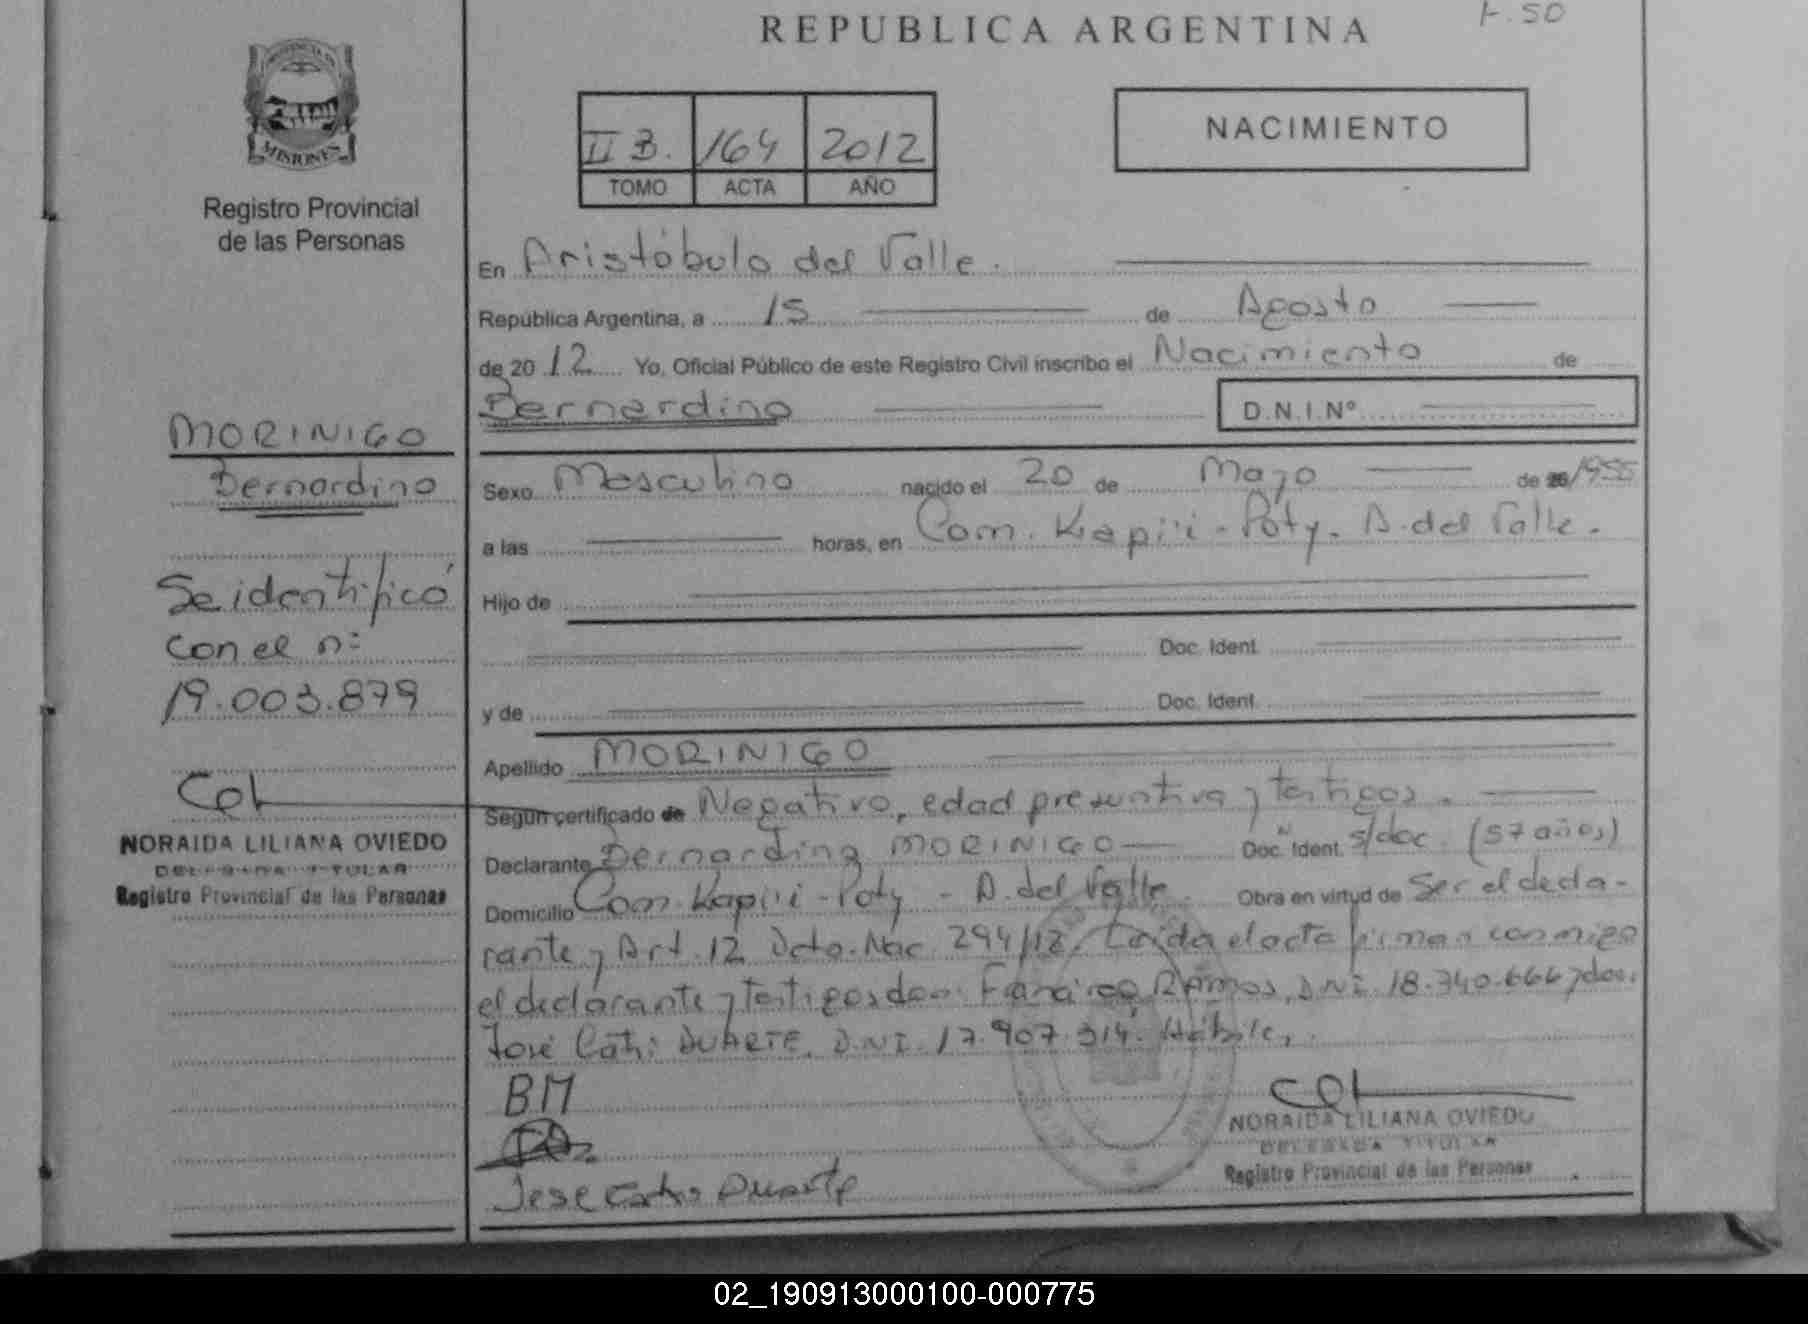 REPUBLICA ARGENTINA
F. 50
PROVINCIA DE
MISIONES
Registro Provincial
de las Personas
II B. 164 2012
TOMO ACTA AÑO
NACIMIENTO
En Aristóbulo del Valle.
República Argentina, a 15 de Agosto
de 20 12 Yo, Oficial Público de este Registro Civil inscribo el Nacimiento de
Bernardino D.N.I.Nº
MORINIGO
Bernardino
Se identificó
con el nº
19.003.879
NORAIDA LILIANA OVIEDO
DELEGADA TITULAR
Registro Provincial de las Personas
Sexo Masculino nacido el 20 de Mayo de 1955
a las horas, en Com. Kapi'i - Poty. A. del Valle.
Hijo de
Doc. Ident.
y de Doc. Ident.
Apellido MORINIGO
Según certificado de Negativo, edad presuntiva y testigos.
Declarante Bernardino MORINIGO Doc. Ident. s/doc. (57 años)
Domicilio Com. Kapi'i - Poty - A. del Valle Obra en virtud de Ser el decla-
rante y Art. 12 Dcto. Nac. 294/12. Leida el acta firman conmigo
el declarante y testigos don: Francisco RAMOS, DNI. 18.340.666 y don.
José DUARTE. D.N.I. 17.907.314. Hábiles.
BM
Jose Duarte
NORAIDA LILIANA OVIEDO
DELEGADA TITULAR
Registro Provincial de las Personas
02_190913000100-000775